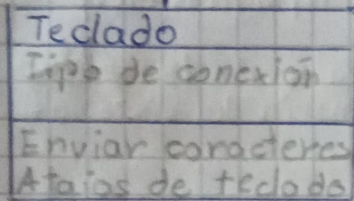 Teclado
Tipo de conexión
Enviar caracteres
Atajos de teclado